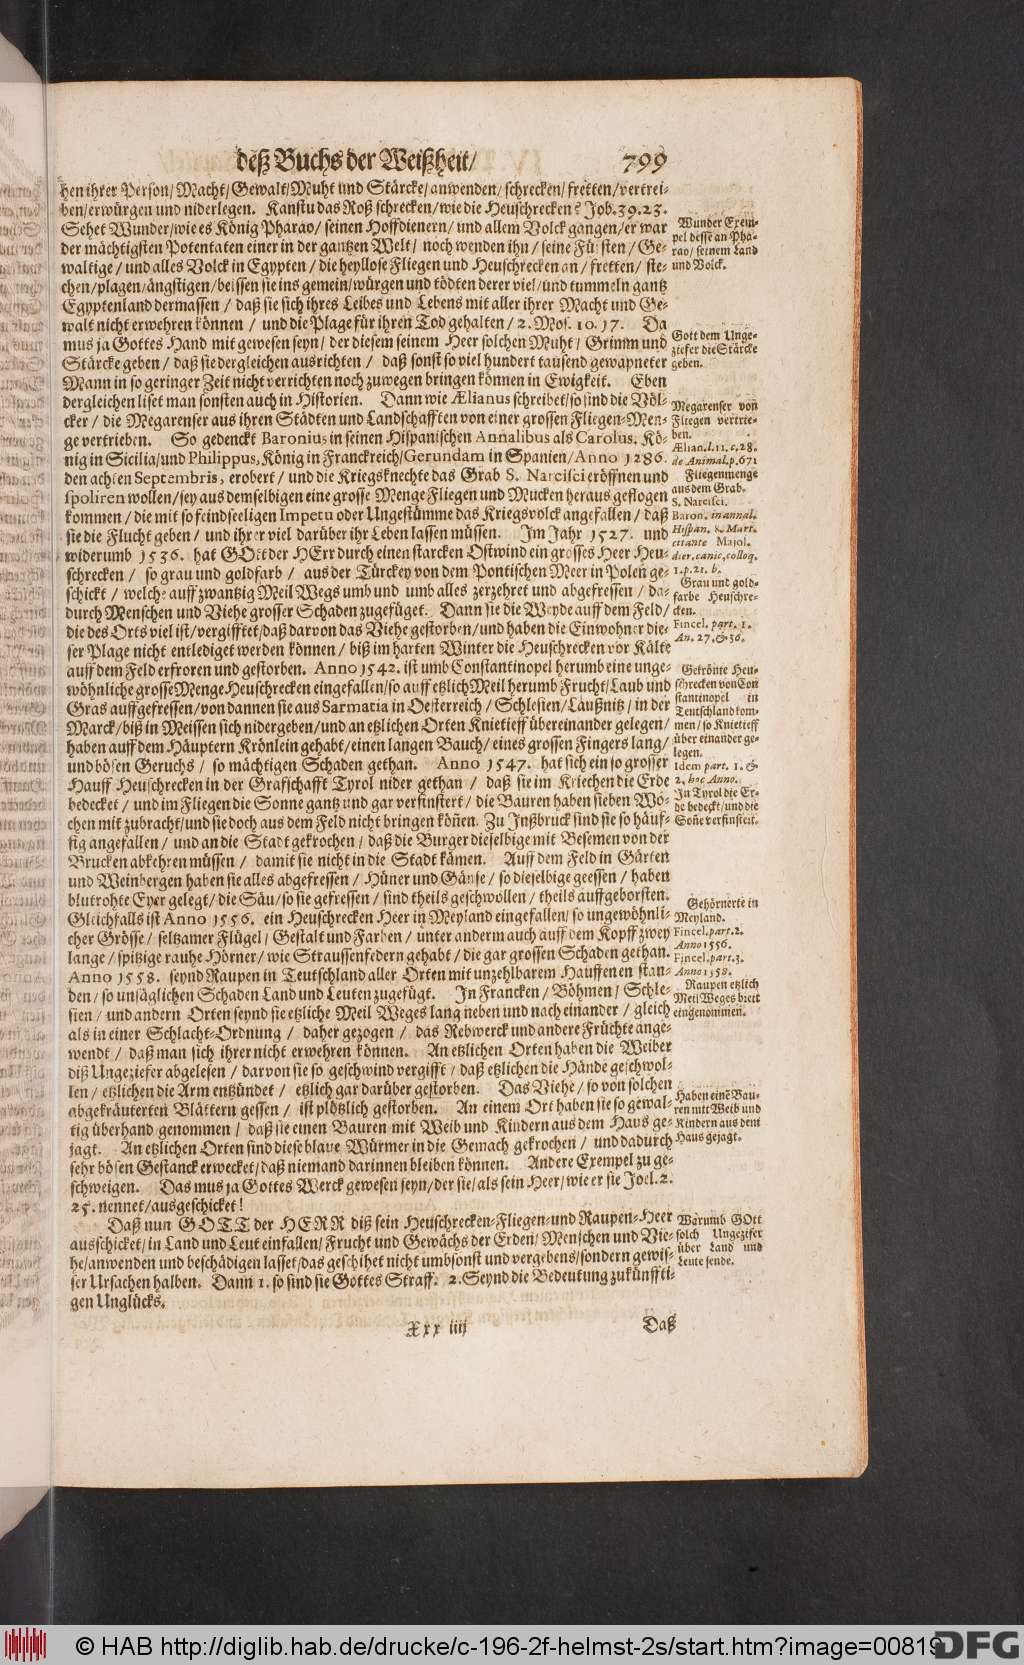 deß Buchs der Weißheit/ 799
hen ihrer Person/Macht/Gewalt/Muht und Stärcke/anwenden/schrecken/fretten/vertrei-
ben/erwürgen und niderlegen. Kanstu das Roß schrecken/wie die Heuschrecken? Job.39.23.
Sehet Wunder/wie es König Pharao/seinen Hoffdienern/und allem Volck gangen/er war
der mächtigsten Potentaten einer in der gantzen Welt/noch wenden ihn/seine Fürsten/Ge-
waltige/und alles Volck in Egypten/die heyllose Fliegen und Heuschrecken an/fretten/ste-
chen/plagen/ängstigen/beissen sie ins gemein/würgen und tödten derer viel/und tummeln gantz
Egyptenland dermassen/daß sie sich ihres Leibes und Lebens mit aller ihrer Macht und Ge-
walt nicht erwehren können/und die Plage für ihren Tod gehalten/2. Mos. 10. 17. Da
mus ja Gottes Hand mit gewesen seyn/der diesem seinem Heer solchen Muht/Grimm und
Stärcke geben/daß sie dergleichen ausrichten/daß sonst so viel hundert tausend gewapneter
Mann in so geringer Zeit nicht verrichten noch zuwegen bringen können in Ewigkeit. Eben
dergleichen liset man sonsten auch in Historien. Dann wie Ælianus schreibet/so sind die Völ-
cker/die Megarenser aus ihren Städten und Landschafften von einer grossen Fliegen-Men-
ge vertrieben. So gedenckt Baronius in seinen Hispanischen Annalibus als Carolus, Kö-
nig in Sicilia/und Philippus, König in Franckreich/Gerundam in Spanien/Anno 1286.
den achten Septembris, erobert/und die Kriegsknechte das Grab S. Narcisci eröffnen und
spoliren wollen/sey aus demselbigen eine grosse Menge Fliegen und Mucken heraus geflogen
kommen/die mit so feindseeligen Impetu oder Ungestümme das Kriegsvolck angefallen/daß
sie die Flucht geben/und ihrer viel darüber ihr Leben lassen müssen. Im Jahr 1527. und
widerumb 1536. hat GOtt der HErr durch einen starcken Ostwind ein grosses Heer Heu-
schrecken/so grau und goldfarb/aus der Türckey von dem Pontischen Meer in Polen ge-
schickt/welche auff zwantzig Meil Wegs umb und umb alles zerzehret und abgefressen/da-
durch Menschen und Viehe grosser Schaden zugefüget. Dann sie die Weyde auff dem Feld/
die des Orts viel ist/vergifftet/daß darvon das Viehe gestorben/und haben die Einwohner die-
ser Plage nicht entlediget werden können/biß im harten Winter die Heuschrecken vor Kälte
auff dem Feld erfroren und gestorben. Anno 1542. ist umb Constantinopel herumb eine unge-
wöhnliche grosse Menge Heuschrecken eingefallen/so auff etzlich Meil herumb Frucht/Laub und
Gras auffgefressen/von dannen sie aus Sarmatia in Oesterreich/Schlesien/Laußnitz/in der
Marck/biß in Meissen sich nidergeben/und an etzlichen Orten Knietieff übereinander gelegen/
haben auff dem Häuptern Krönlein gehabt/einen langen Bauch/eines grossen Fingers lang/
und bösen Geruchs/so mächtigen Schaden gethan. Anno 1547. hat sich ein so grosser
Hauff Heuschrecken in der Grafschafft Tyrol nider gethan/daß sie im Kriechen die Erde
bedecket/und im Fliegen die Sonne gantz und gar verfinstert/die Bauren haben sieben Wo-
chen mit zubracht/und sie doch aus dem Feld nicht bringen köñen. Zu Inßbruck sind sie so häuf-
fig angefallen/und an die Stadt gekrochen/daß die Burger dieselbige mit Besemen von der
Brucken abkehren müssen/damit sie nicht in die Stadt kämen. Auff dem Feld in Gärten
und Weinbergen haben sie alles abgefressen/Hüner und Gänse/so dieselbige geessen/haben
blutrohte Eyer gelegt/die Säu/so sie gefressen/sind theils geschwollen/theils auffgeborsten.
Gleichfalls ist Anno 1556. ein Heuschrecken Heer in Meyland eingefallen/so ungewöhnli-
cher Grösse/seltzamer Flügel/Gestalt und Farben/unter anderm auch auff dem Kopff zwey
lange/spitzige rauhe Hörner/wie Straussenfedern gehabt/die gar grossen Schaden gethan.
Anno 1558. seynd Raupen in Teutschland aller Orten mit unzehlbarem Hauffen enstan-
den/so unsäglichen Schaden Land und Leuten zugefügt. In Francken/Böhmen/Schle-
sien/und andern Orten seynd sie etzliche Meil Weges lang neben und nach einander/gleich
als in einer Schlacht-Ordnung/daher gezogen/das Rebwerck und andere Früchte ange-
wendt/daß man sich ihrer nicht erwehren können. An etzlichen Orten haben die Weiber
diß Ungeziefer abgelesen/darvon sie so geschwind vergifft/daß etzlichen die Hände geschwol-
len/etzlichen die Arm entzündet/etzlich gar darüber gestorben. Das Viehe/so von solchen
abgekräuterten Blättern gessen/ist plötzlich gestorben. An einem Ort haben sie so gewal-
tig überhand genommen/daß sie einen Bauren mit Weib und Kindern aus dem Haus ge-
jagt. An etzlichen Orten sind diese blaue Würmer in die Gemach gekrochen/und dadurch
sehr bösen Gestanck erwecket/daß niemand darinnen bleiben können. Andere Exempel zu ge-
schweigen. Das mus ja Gottes Werck gewesen seyn/der sie/als sein Heer/wie er sie Joel. 2.
25. nennet/ausgeschicket!
Daß nun GOTT der HERR diß sein Heuschrecken-Fliegen-und Raupen-Heer
ausschicket/in Land und Leut einfallen/Frucht und Gewächs der Erden/Menschen und Vie-
he/anwenden und beschädigen lasset/das geschihet nicht umbsonst und vergebens/sondern gewis-
ser Ursachen halben. Dann 1. so sind sie Gottes Straff. 2. Seynd die Bedeutung zukünffti-
gen Unglücks.
Xxx iiij Daß
Wunder Exem-
pel desse an Pha-
rao/seinem Land
und Volck.
Gott dem Unge-
ziefer die Stärcke
geben.
Megarenser von
Fliegen vertrie-
ben.
Ælian.l.11.c.28.
de Animal.p.671
Fliegenmenge
aus dem Grab.
S. Narcisci.
Baron. in annal.
Hispan. & Mart.
citante Majol.
dier.canic.colloq.
1.p.21.b.
Grau und gold-
farbe Heuschre-
cken.
Fincel. part. 1.
An. 27.&36.
Gekrönte Heu-
schrecken von Con
stantinopel in
Teutschland kom-
men/so Knietieff
über einander ge-
legen.
Idem part. 1. &
2. hoc Anno.
In Tyrol die Er-
de bedeckt/und die
Soñe verfinstert.
Gehörnerte in
Meyland.
Fincel.part.2.
Anno 1556.
Fincel.part.3.
Anno 1558.
Raupen etzlich
Meil Weges breit
eingenommen.
Haben einē Bau-
ren mit Weib und
Kindern aus dem
Haus gejagt.
Warumb GOtt
solch Ungeziefer
über Land und
Leute sende.
© HAB http://diglib.hab.de/drucke/c-196-2f-helmst-2s/start.htm?image=00819
DFG